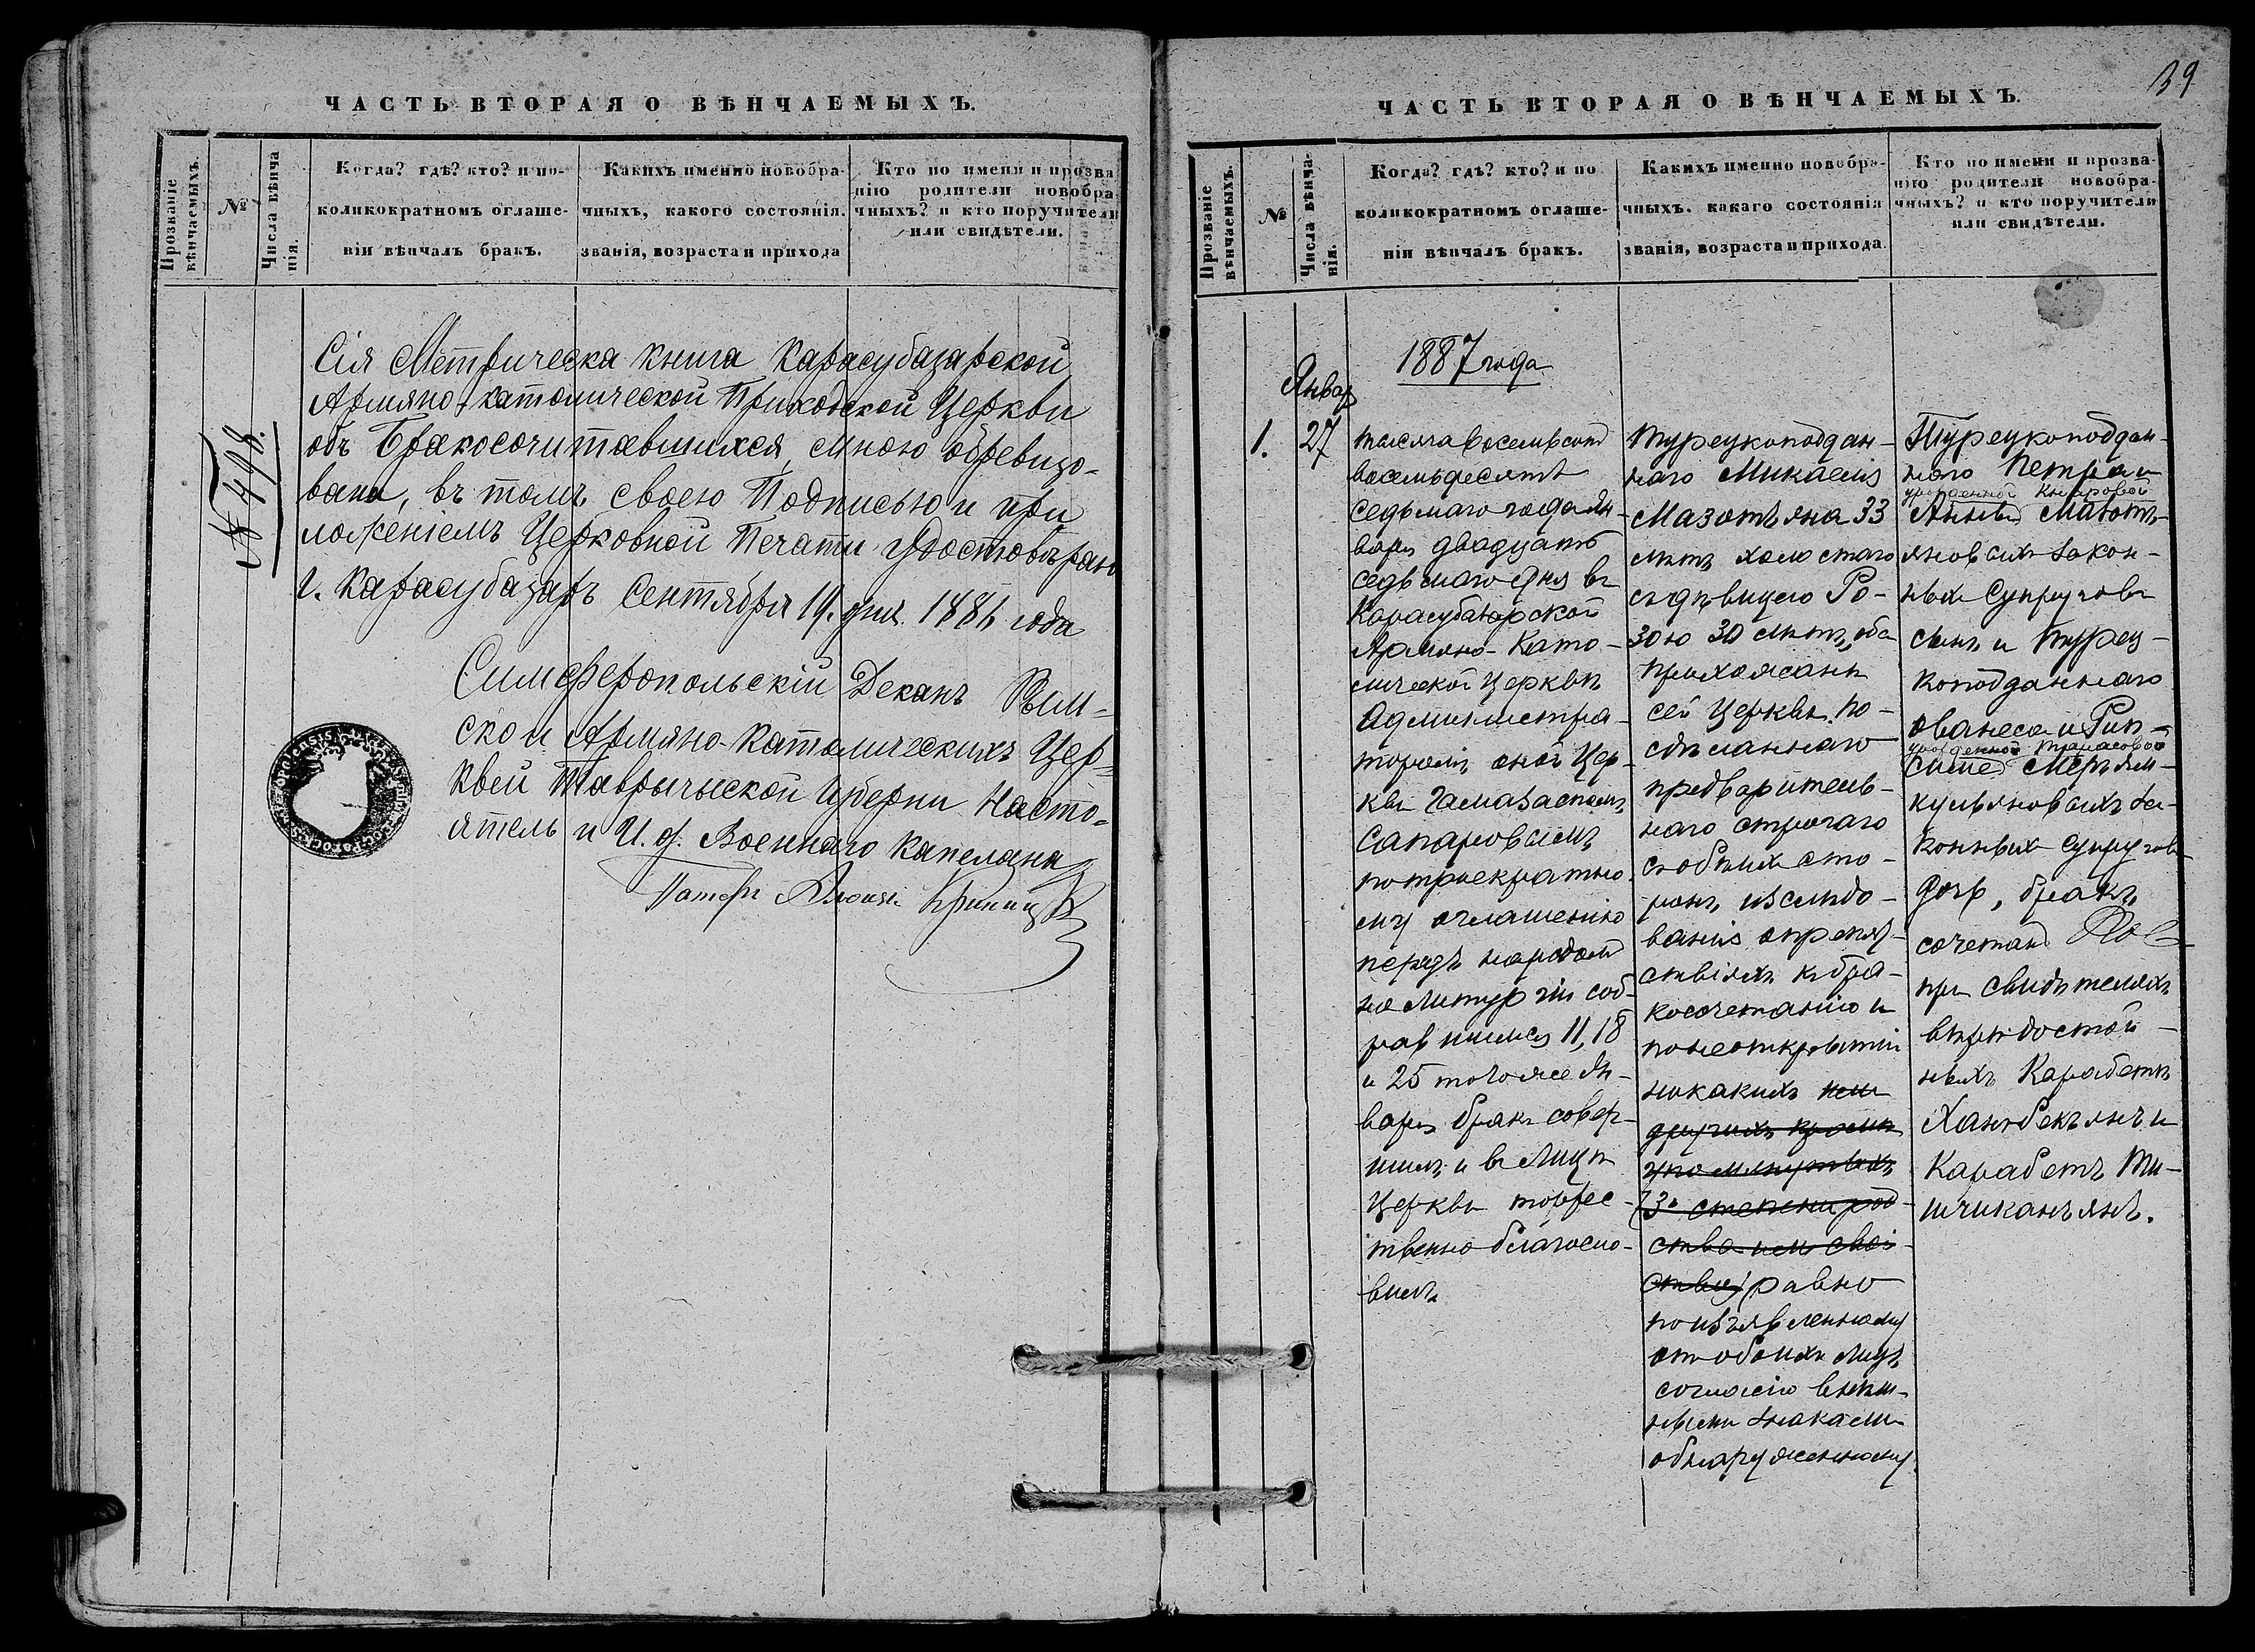 ЧАСТЬ ВТОРАЯ О ВѢНЧАЕМЫХЪ.
Прозваніе вѣнчаемыхъ.
№
Числа вѣнча
нія.
Когда? гдѣ? кто? и по-
коликократномъ оглаше-
ніи вѣнчалъ бракъ.
Какихъ именно новобра-
чныхъ, какого состоянія.
званія, возраста и прихода
Кто по имени и прозва
нію родители новобра
чныхъ? и кто поручители
или свидѣтели.
№ 498.
Сія Метрическа книга Карасубазарской
Армяно-католической Приходской Церкви
объ Бракосочитавшихся, мною обревизо-
вана, въ томъ своею Подписью и при
ложеніемъ Церковной Печати удостовѣраю
г. Карасубазаръ Сентября 19. дня. 1886 года
Симферопольскій Деканъ Рым-
ско и Армяно-Католическихъ Цер-
квей Таврической Губерни Насто-
ятель и И. д. Военнаго Капелана
Патеръ
39
ЧАСТЬ ВТОРАЯ О ВѢНЧАЕМЫХЪ.
Прозваніе
вѣнчаемыхъ.
№
Числа вѣнча-
нія.
Когда? гдѣ? кто? и по
коликократномъ оглаше-
ніи вѣнчалъ бракъ.
Какихъ именно новобра-
чныхъ. какаго состоянія
званія, возраста и прихода.
Кто по имени и прозва-
нію родители новобра-
чныхъ? и кто поручители
или свидѣтели.
1887 года
Январ
1.
27
тысяча восемьсотъ
восемьдесятъ
седьмаго года Ян-
варя двадцать
седьмаго дня въ
Карасубазарской
Армяно-Като-
лической Церквѣ
Администра-
торомъ оной Цер-
кви Гамазаспомъ
Сапаровымъ
по троекратно-
му оглашенію
передъ народомъ
на Литургіи соб-
равшимся 11, 18
и 25 того же Ян-
варя бракъ совер-
шилъ и въ Лицѣ
Церкви торжес-
твенно благосло-
вилъ.
Турецкоподдан-
наго Микаела
Мазотьяна 33
лѣтъ холостаго
съ дѣвицею Ро-
зою 30 лѣтъ, оба
прихожане
сей Церкви. По
сдѣланнаго
предварительв-
наго строгаго
съ обѣихъ сто-
ронъ изслѣдо-
ванія опрепят-
ствіяхъ къ бра-
косочетанію и
по неоткрытіи
никакихъ или
другихъ кромѣ
упомянутыхъ
(3й степени род-
ства или свой-
ства) равно
по изъявленному
отъ обоихъ лицъ
согласію внѣш-
ными знаками
обнаруженному
Турецкоподдан-
наго Петра и
урожденной
Анны Мазоть-
яновыхъ закон-
ныхъ Супруговъ
сынъ и Турец-
коподданнаго
Ованеса и Рип-
урожденной Тарасовой
симе
кульяновыхъ за-
конныхъ супругов
дочь, бракъ
сочеталъ
при свидѣтеляхъ
вѣрыдостой-
ныхъ Карабетъ
Ханбекъянъ и
Карабетъ Ти-
шчиканъянъ.